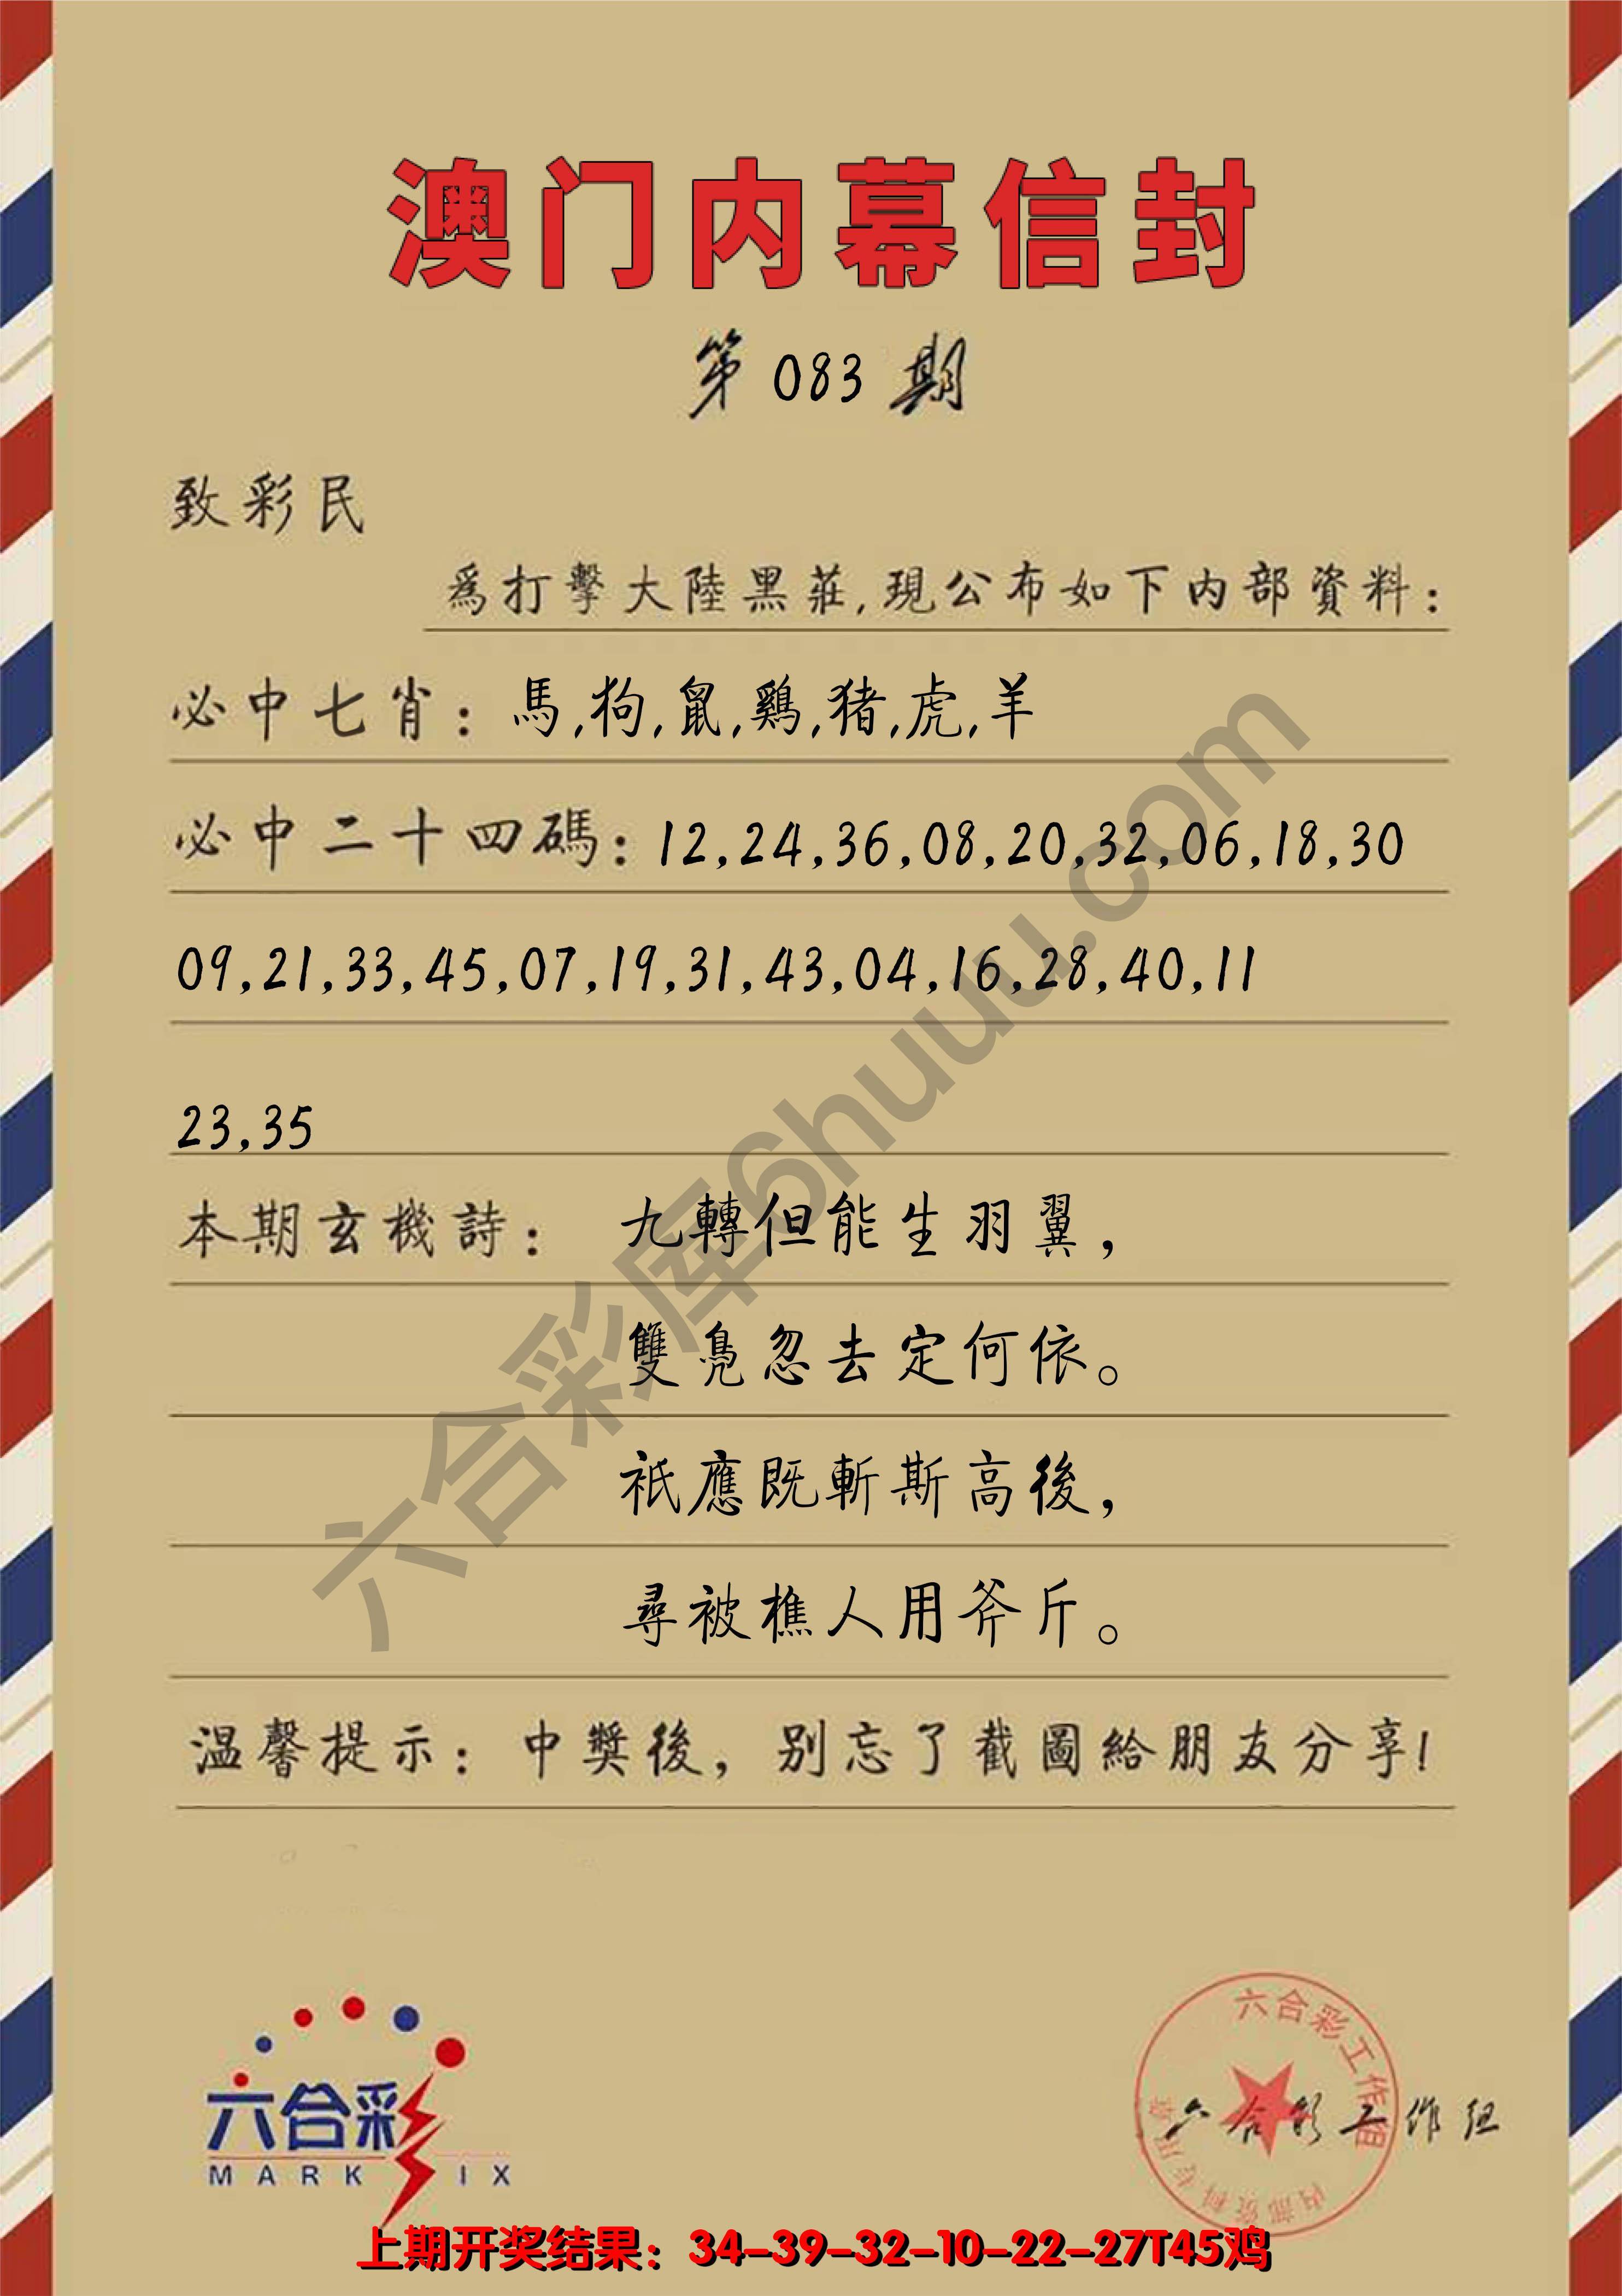 澳门内幕信封
第 083 期
致彩民
爲打擊大陸黑莊,現公布如下内部資料:
必中七肖: 馬,狗,鼠,鷄,猪,虎,羊
必中二十四碼: 12,24,36,08,20,32,06,18,30
09,21,33,45,07,19,31,43,04,16,28,40,11
23,35
本期玄機詩: 九轉但能生羽翼,
雙鳧忽去定何依。
祇應既斬斯高後,
尋被樵人用斧斤。
温馨提示: 中獎後, 别忘了截圖給朋友分享!
六合彩库6huuu.com
六合彩
MARK SIX
六合彩工作组
内部资料专用章
六合彩工作组
上期开奖结果: 34-39-32-10-22-27T45鸡